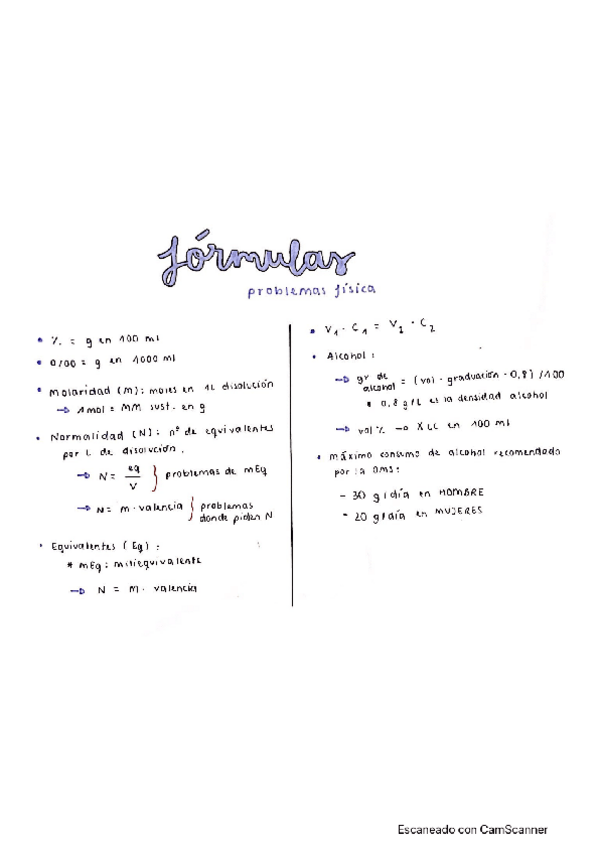 fórmulas
problemas física
• % = g en 100 ml
• 0/00 = g en 1000 ml
• Molaridad (M): moles en 1L disolución
→ 1mol = MM sust. en g
• Normalidad (N): nº de equivalentes
por L de disolución.
→ N = eq/V } problemas de mEq
→ N = M · valencia } problemas
donde piden N
• Equivalentes (Eq):
* mEq: miliequivalente
→ N = M · valencia
• V1 · C1 = V1 · C2
• Alcohol:
→ gr de
alcohol = (vol · graduación · 0,8) /100
* 0,8 g/L es la densidad alcohol
→ vol % → X cc en 100 ml
• máximo consumo de alcohol recomendado
por la OMS:
- 30 g/día en HOMBRE
- 20 g/día en MUJERES
Escaneado con CamScanner